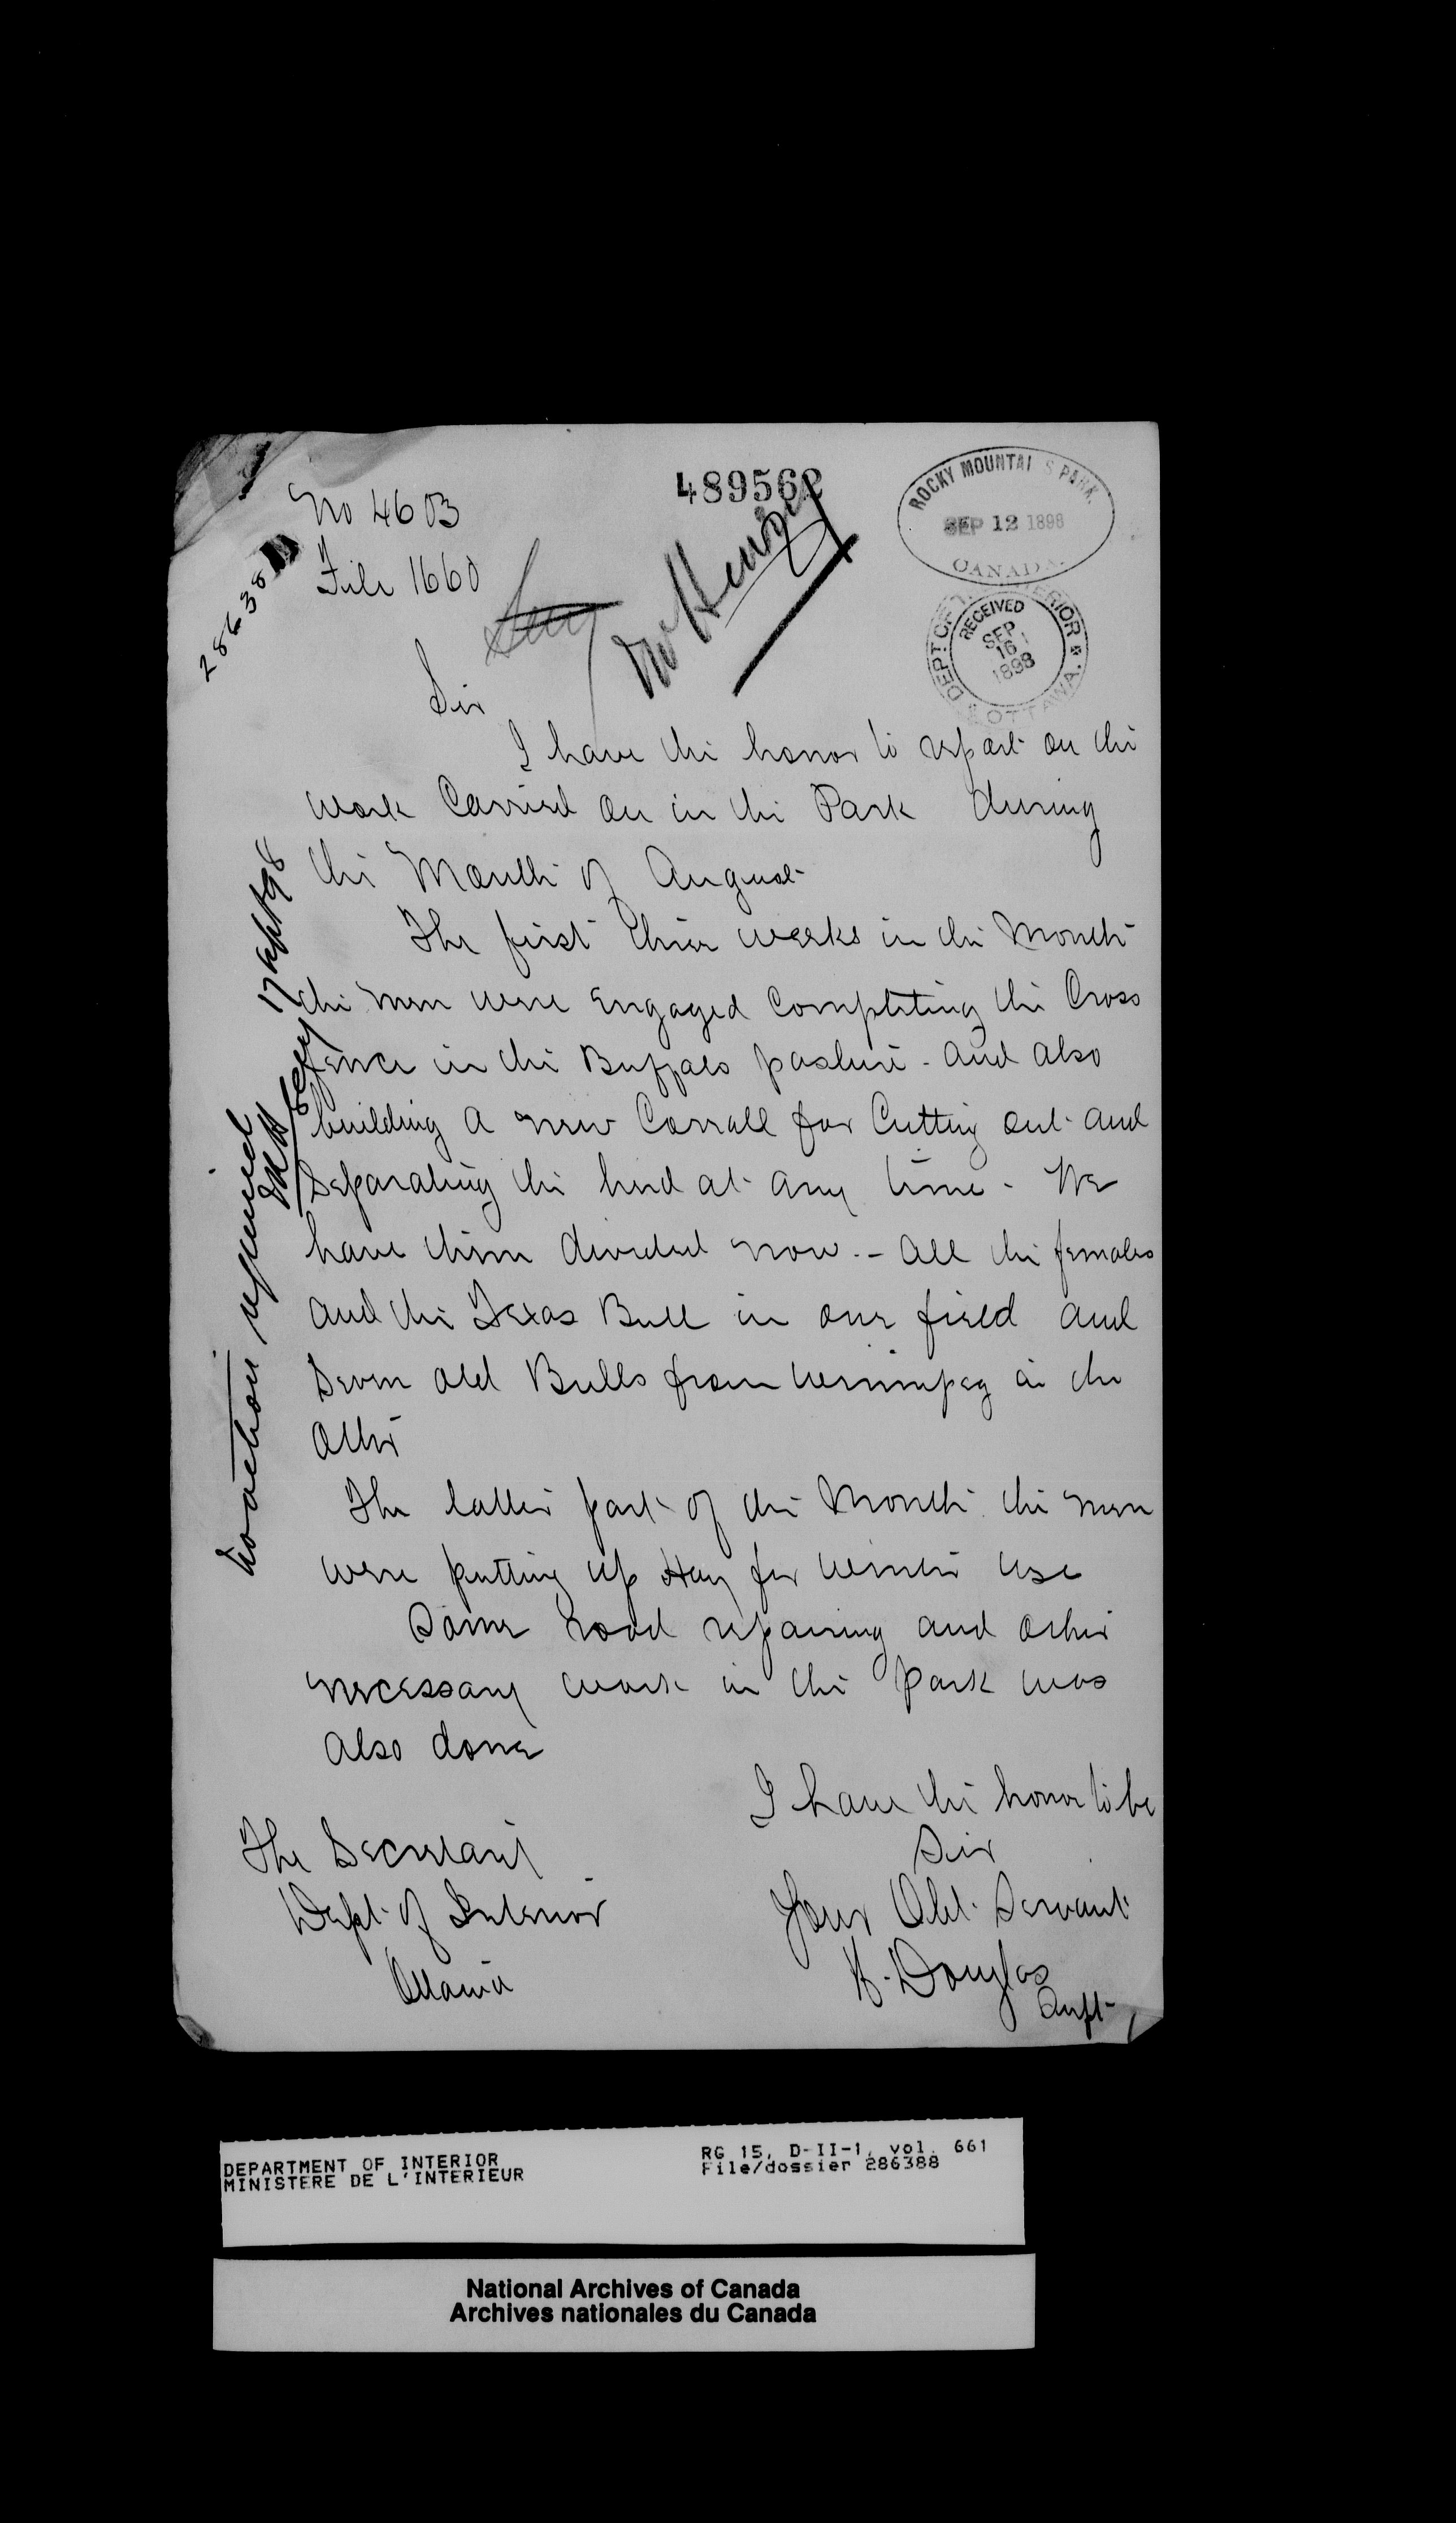 489562
ROCKY MOUNTAI S PARK
SEP 12 1898
CANADA.
No 4603
File 1660
28638
Mr Henry
DEPT. OF T. INTERIOR
RECEIVED
SEP.
16
1898
OTTAWA.
Sir
I have the honor to report on the
work Carried on in the Park during
the Month of August
The first three weeks in the Month
the men were Engaged Completing the Cross
fence in the Buffalo pasture - and also
building a new Corrall for Cutting out and
Separating the herd at any time - We
have them divided now. - All the females
and the Texas Bull in one field and
Seven old Bulls from Winnipeg in the
Other
The latter part of the Month the men
were putting up Hay for winter use
Some road repairing and other
necessary work in the Park was
also done
I have the honor to be
Sir
Your Obt. Servant
H. Douglas
Supt
The Secretary
Dept. of Interior
Ottawa
No action required
17 Sept 98
DEPARTMENT OF INTERIOR
MINISTERE DE L'INTERIEUR
RG 15, D-II-1, vol. 661
File/dossier 286388
National Archives of Canada
Archives nationales du Canada